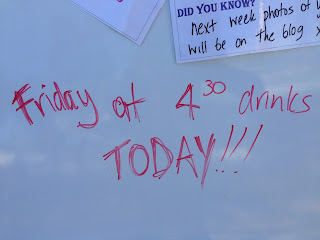 DID YOU KNOW?
next week photos of
will be on the blog
Friday at 4³⁰ drinks
TODAY!!!